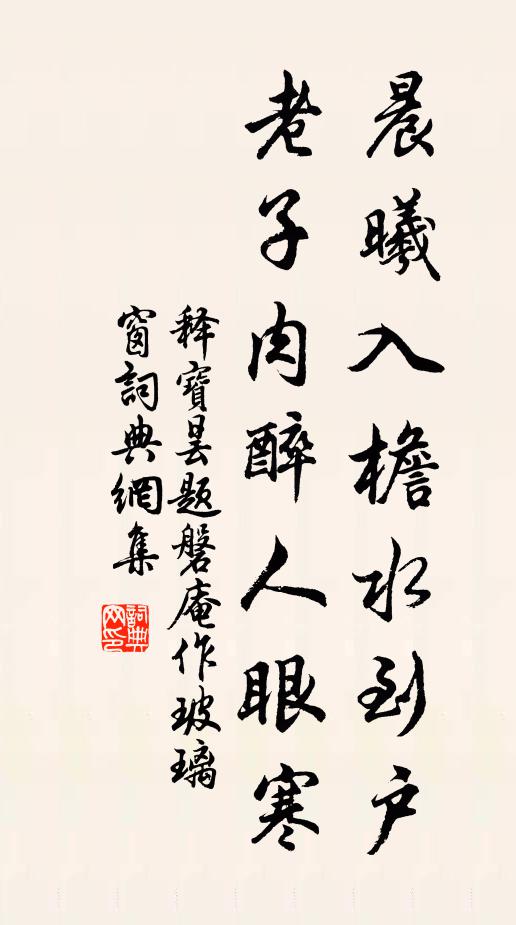 晨曦入檐水到户
老子肉醉人眼寒
释寶昙题磐庵作玻璃
窗詞典網集
詞典網印